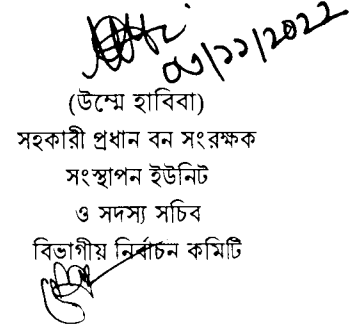 (উম্মে হাবিবা)
সহকারী প্রধান বন সংরক্ষক
সংস্থাপন ইউনিট
ও সদস্য সচিব
বিভাগীয় নির্বাচন কমিটি